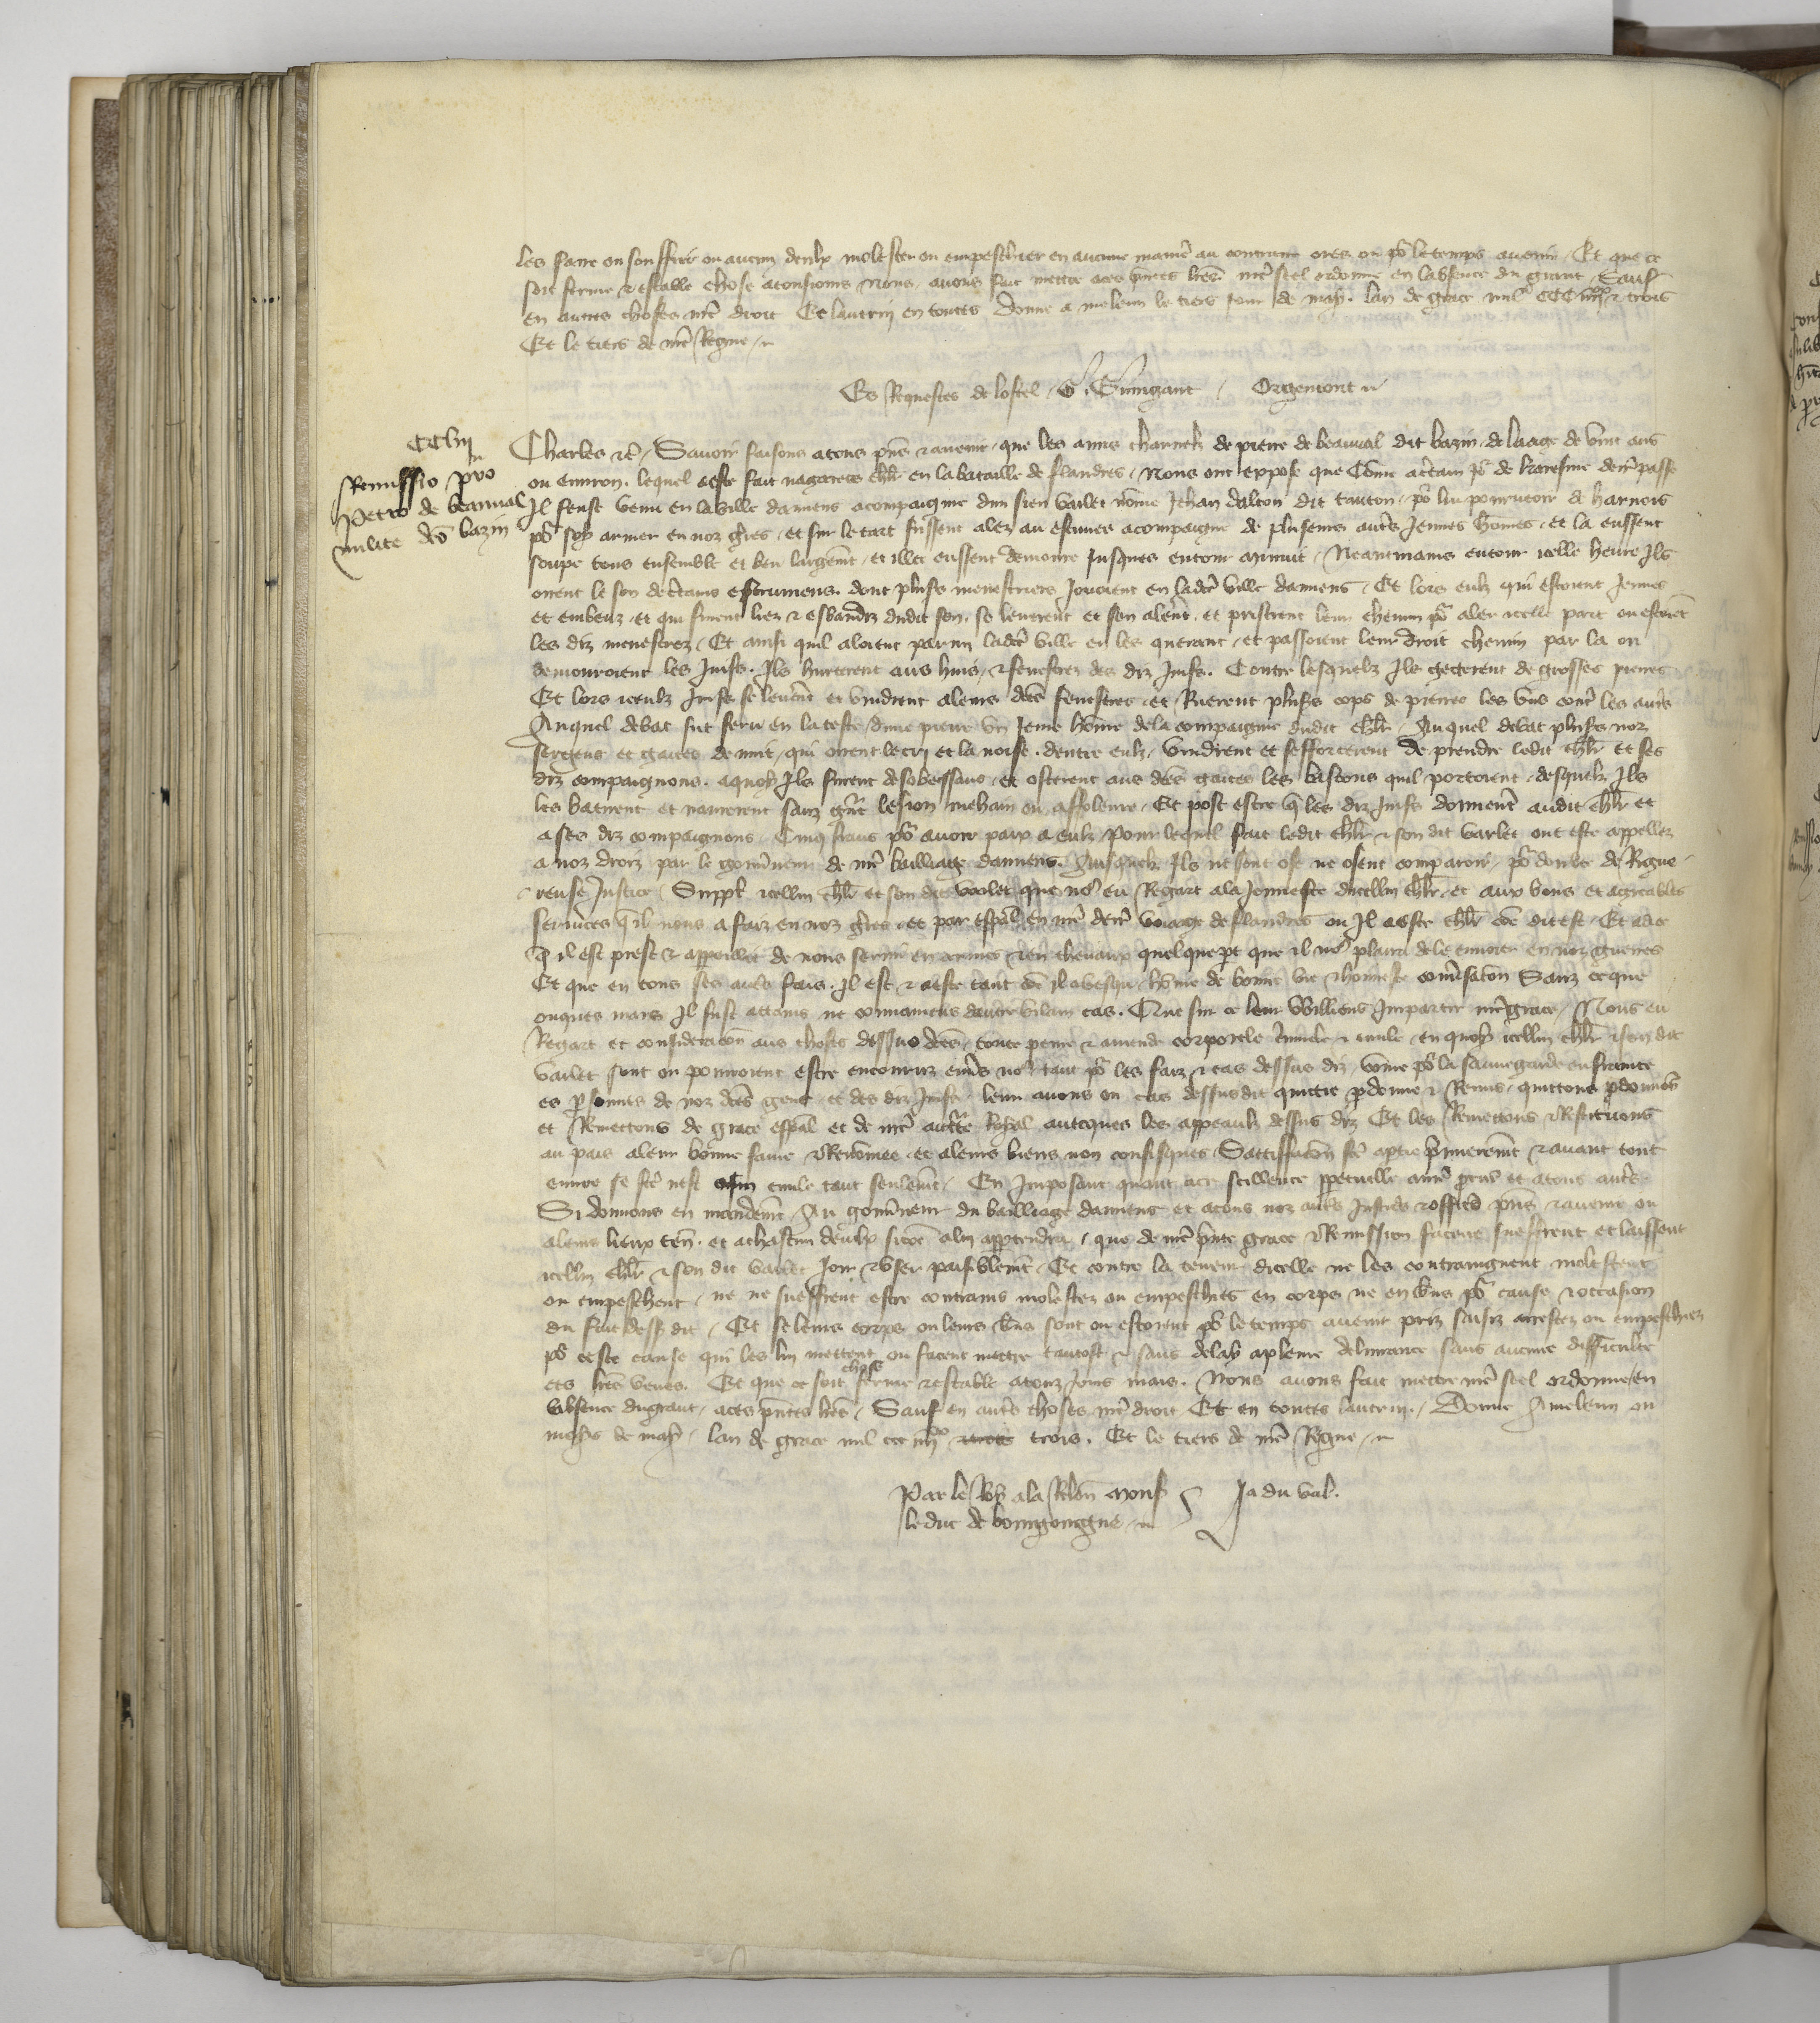 les faire ou souffrir ou aucun deulx molester ou empeschier en aucune maniē au contraire ores ou pō le temps avenir / Et que ce
soit ferme & estable chose a tousiours Nous avons fait mettre a ces pn̄tes lrēs nrē scel ordonne en labsence du grant / Sauf
en autres choses nrē droit Et lautrui en toutes Donne a meleun le tiers iour de may. lan de grace mil CCC iiijxx & trois
Et le tiers de nrē Regne /
Es Requestes de lostel / G. Guingant / Orgemont
CCliij
Remissio pro
Petro de beauval
milite dc̄o bazin
Charles &c̄ / Savoir faisons a tous pn̄s & avenir / que les amis charnelz de pierre de beauval dit bazin / de laage de vint ans
ou environ. lequel a este fait nagaires chlr̄ en la bataille de flandres / Nous ont expose que Cōme a c̄tain io᷑ de karesme dern̄ passe
Il feust venu en la ville damiens acompaigne dun sien varlet nōme Jehan dalton dit tauton / po᷑ lui pourveoir de harnois
po᷑ soy armer en noz gr̄res / et sur le tart fussent alez au estuves acompaigne de plusieurs autr̄s Jeunes hōmes / et la eussent
soupe tous ensemble et beu largem̄t / et illec eussent demoure Jusques entour minuit / Neantmains entour icelle heure Ils
oirent le son de c̄tains estrumens. dont plusrs menestriers Jouoient en lad̄c ville damiens / Et lors eulz qui estoient Jeunes
et embeuz / et qui furent liez & esbaudiz dudit son / se leverēt et sen alerēt. et pristrent leur chemin po᷑ aler icelle part ou estoiēt
les diz menestrez / Et ainsi quil aloient parmi lad̄c ville en les querant / et passoient leur droit chemin par la ou
demouroient les Juifs. Ils hurterent aus huis / & fenestres des diz Juifs. Contre lesquelz Ils gecterent de grosses pierres
Et lors iceulz Juifs se leverēt et vindrent a leurs dc̄es fenestres et Ruerent plusrs cops de pierres les uns cont̄ les autr̄s
Auquel debat fut feru en la teste dune pierre un Jeune hōme de la compaignie dudit chlr̄ / Au quel debat plusrs noz
sergens et gaites de nuit / qui oirent le cry et la noise. dentre eulz / vindrent et sefforcerent de prendre ledit chlr̄ et ses
diz compaignons. a quoy Ils furent desobeissans / et osterent aus dc̄es gaites les bastons quil portoient / desquelz Ils
les batirent et navrerent sanz gr̄nt lesion mehain ou affoleure / Et post estre q̄ les diz Juifs donnerēt audit chlr̄ et
a ses diz compaignons Cinq frans po᷑ avoir paix a eulz / Pour lequel fait ledit chlr̄ & son dit varlet ont este appellez
a noz droiz par le gouv̄neur de nrē bailliage damiens. Ausquelz Ils ne sont ose ne osent comparoir / po᷑ doubte de Rigue-
reuse Justice / Suppl̄ icellui chlr̄ et son dit varlet que no᷑ eu Regart a la Jonnesce dicellui chlr̄ / et aux bons et agreables
services q̄ il nous a faiz en noz gr̄res et par esp̄al en nrē dern̄ voiage de flandres ou Il a este chlr̄ cōe dit est / Et a ce
q̄ il est prest & appareillie de nous servir en armes & en chevaux quelque pt que il no᷑ plaira de le envoier en noz guerres
Et que en tous ses autr̄s faiz. Il est & a este tant cōe il a vesqu hōme de bonne vie & honneste conv̄sacōn Sanz ce que
onques mais Il fust attains ne convaincus dautre vilain cas. Que sur ce leur vueilliens Impartir nrē grace / Nous eu
Regart et consideracōn aus choses dessus dc̄es / toute peine & amende corporele crimīele & civile / en quoy icellui chlr̄ & son dit
varlet sont ou pourroient estre encouruz env̄s no᷑ / tant po᷑ les faiz & cas dessus diz / cōme po᷑ la sauvegarde enfrainte
es p̄sonnes de noz dc̄es gens / et des diz Juifs / leur avons ou cas dessus dit quitte p̄donne & Remis / quittons p̄donnōs
et Remettons de grace esp̄al et de nrē auct̄te Royal avecques les appeaulx dessus diz Et les Remettons & Restituons
au pais a leur bonne fame & Renōmee et a leurs biens non confisques / Satisfacōn fc̄e a ptie p̄mierem̄t & avant tout
euvre se fc̄e nest civile tant seulem̄t / En Imposant quant a ce scillence p̄petuelle a nrē procur̄ et a tous autr̄s
Si donnons en mandem̄t Au gouv̄neur du bailliage damiens et a touz noz autr̄s Justic̄s & officiēs p̄ns & avenir ou
a leurs lieux ten̄. et a chascun deulx si cōe a lui app̄tendra / que de nrē p̄nte grace & Remission facent sueffrent et laissent
icellui chlr̄ & son dit varlet Joir & user paisiblem̄t / Et contre la teneur dicelle ne les contraingnent molestent
ou empeschent / ne ne sueffrent estre contrains molestez ou empeschies en corps ne en biens po᷑ cause & occasion
du fait dess dit / Et se leurs corps ou leurs biens sont ou estoient po᷑ le temps avenir priz saisiz arrestez ou empeschiez
po᷑ ceste cause quil les lui mettent ou facent mettre tantost & sans delay a pleine delivrance sans aucune difficulte
ces lrēs veues. Et que ce soit chose ferme & estable a touz Jours mais. Nous avons fait mettre nrē scel ordonne en
labsence du grant / a ces p̄ntes lrēs / Sauf en autr̄s choses nrē droit Et en toutes lautrui. / Donne A meleun ou
moys de may / lan de grace mil ccc iiijxx trois. Et le tiers de nrē Regne /
Par le Roy a la Relōn mons
le duc de bourgongne / Ja du val.